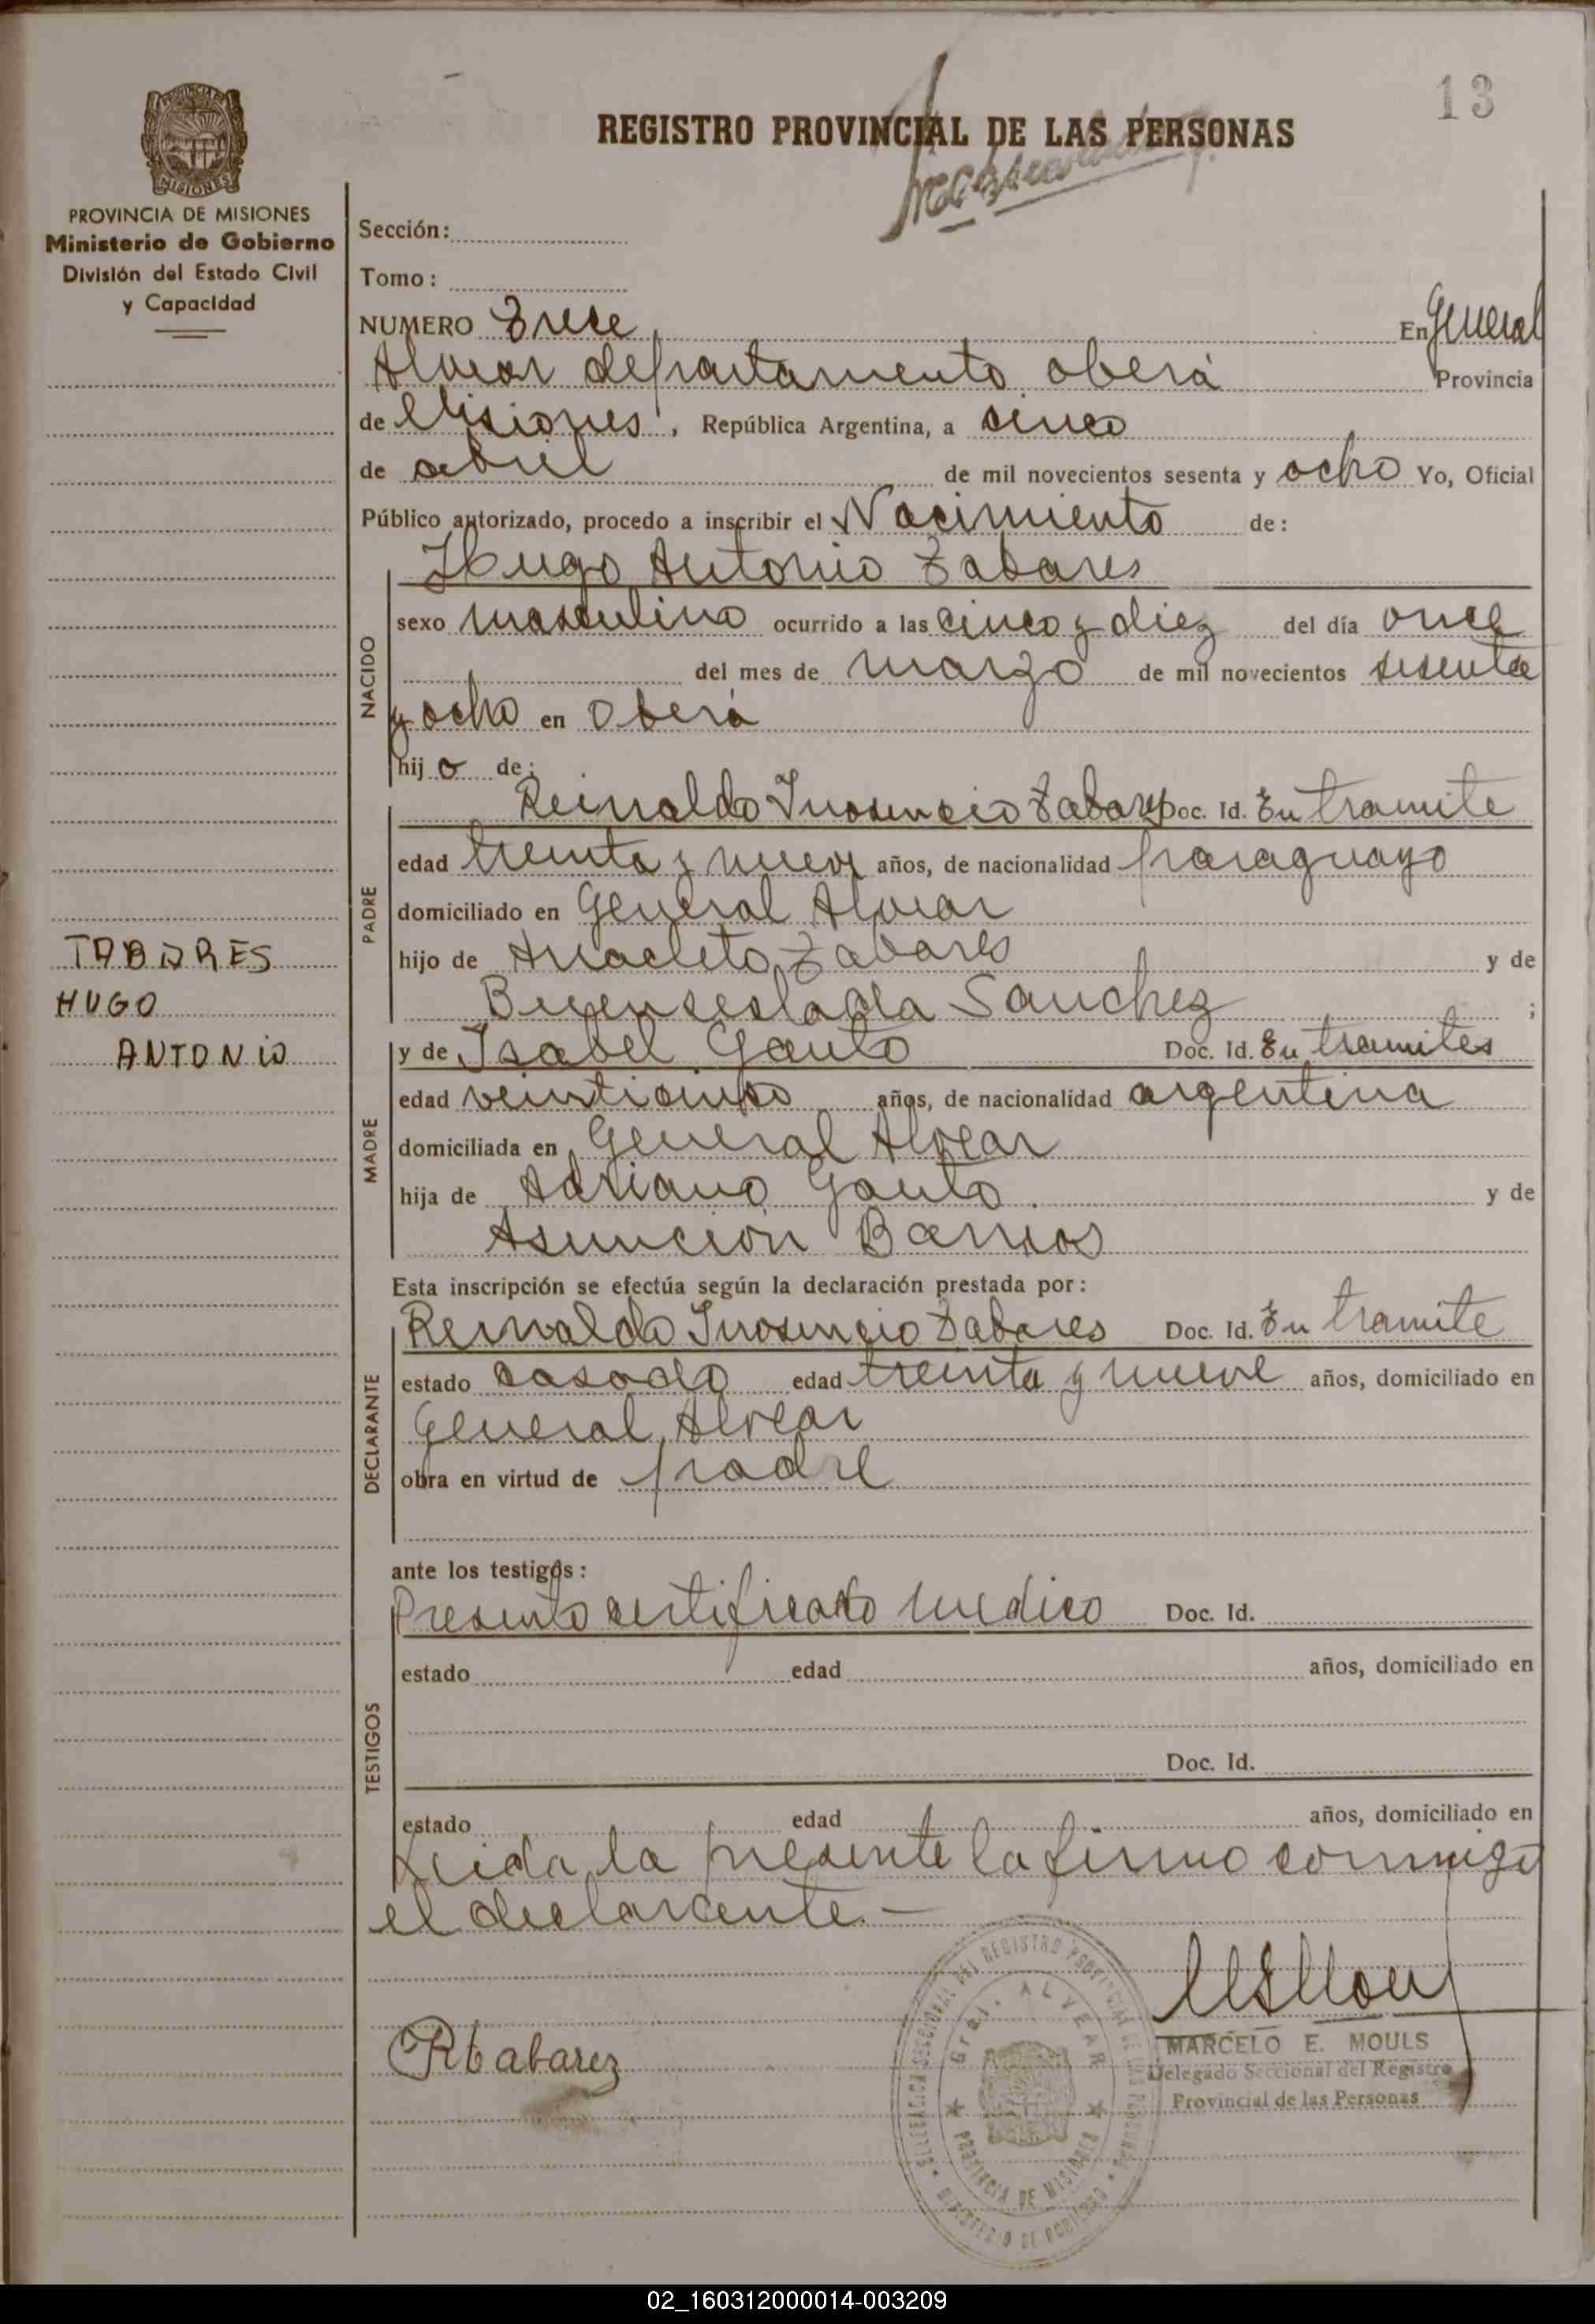 13
REGISTRO PROVINCIAL DE LAS PERSONAS
PROVINCIA DE MISIONES
Ministerio de Gobierno
División del Estado Civil
y Capacidad
Sección:
Tomo:
NUMERO Trece En General
Alvear departamento oberá Provincia
de Misiones, República Argentina, a cinco
de abril de mil novecientos sesenta y ocho Yo, Oficial
Público autorizado, procedo a inscribir el Nacimiento de:
Hugo Antonio Tabares
NACIDO
sexo masculino ocurrido a las cinco y diez del día once
del mes de marzo de mil novecientos sesenta
y ocho en Oberá
hijo de:
PADRE
Reinaldo Inosencio Tabares Doc. Id. En tramite
edad treinta y nueve años, de nacionalidad paraguayo
domiciliado en General Alvear
hijo de Anacleto Tabares y de
Buenseslada Sanchez ;
TABARES
HUGO
ANTONIO
MADRE
y de Isabel Gauto Doc. Id. En tramites
edad veinticinco años, de nacionalidad argentina
domiciliada en General Alvear
hija de Adriano Gauto y de
Asunción Barrios
Esta inscripción se efectúa según la declaración prestada por:
DECLARANTE
Reinaldo Inosencio Tabares Doc. Id. En tramite
estado casado edad treinta y nueve años, domiciliado en
General Alvear
obra en virtud de padre
ante los testigos:
TESTIGOS
Presento certificado medico Doc. Id.
estado edad años, domiciliado en
Doc. Id.
estado edad años, domiciliado en
Leida la presente la firmo conmigo
el declarante.-
RTabarez
MARCELO E. MOULS
Delegado Seccional del Registro
Provincial de las Personas
DELEGACION SECCIONAL DEL REGISTRO PROVINCIAL DE LAS PERSONAS
Gral. ALVEAR
PROVINCIA DE MISIONES
MINISTERIO DE GOBIERNO
02_160312000014-003209